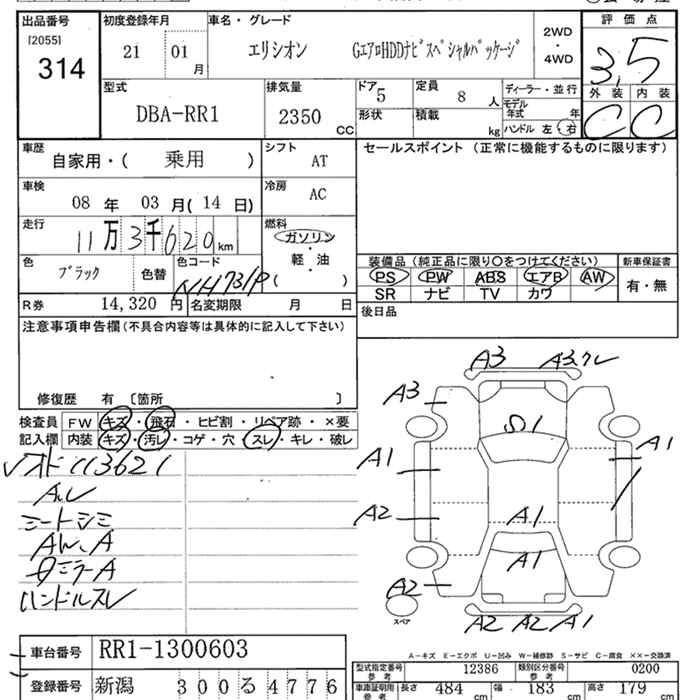 出品番号 初度登録年月 車名・グレード 評価点
[2055]
314
21 01 月
エリシオン GエアロHDDナビスペシャルパッケージ
2WD
・
4WD
3,5
外装 内装
C C
型式 排気量 ドア 定員 ディーラー・並行
DBA-RR1 2350 CC 5 8 人
モデル年式 年
形状 積載 kg ハンドル 左・右
車歴 シフト セールスポイント (正常に機能するものに限ります)
自家用・( 乗用 ) AT
車検 冷房
08 年 03 月( 14 日) AC
走行 燃料
11万3千620km ガソリン
・
軽・油
( )
色 色コード
ブラック 色替 NH731P
装備品 (純正品に限り〇をつけてください) 新車保証書
PS PW ABS エアB AW 有・無
SR ナビ TV カワ
R券 14,320 円 名変期限 月 日
後日品
注意事項申告欄 (不具合内容等は具体的に記入して下さい)
修復歴 有 〔箇所 〕
検査員 FW キズ・飛石・ヒビ割・リペア跡・×要
記入欄 内装 キズ・汚レ・コゲ・穴・スレ・キレ・破レ
113621
ハンドルスレ
A3 A3
A3
S1
A1 A1
A2 A1
A1
A2
スペア
A2 A2 A1
A-キズ E-エクボ U-凹み W-補修跡 S-サビ C-腐食 ××-交換済
車台番号 RR1-1300603
型式指定番号 参考 12386 類別区分番号 参考 0200
登録番号 新潟 300る4776
車庫証明用 参考 長さ 484 cm 幅 183 cm 高さ 179 cm